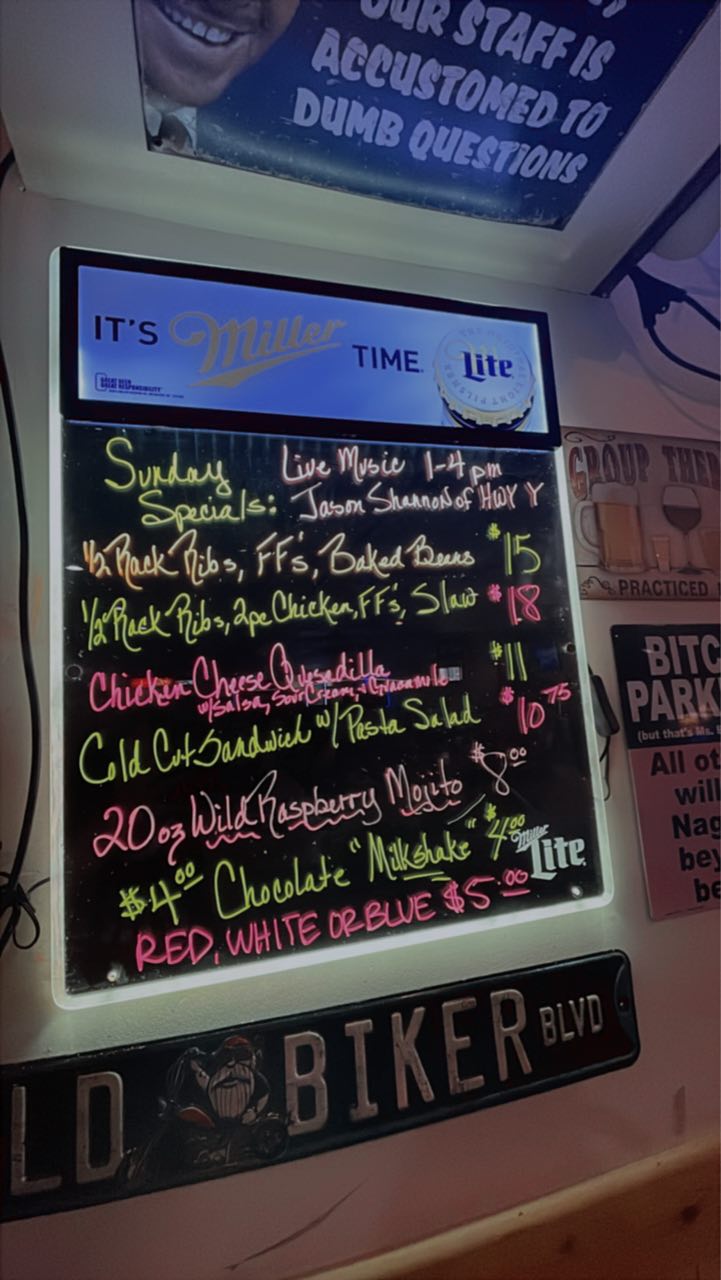 OUR STAFF IS
ACCUSTOMED TO
DUMB QUESTIONS
IT'S Miller TIME. Lite
GREAT BEER
GREAT RESPONSIBILITY
Sunday Live Music 1-4 pm
Specials: Jason Shannon of HWY Y
1/2 Rack Ribs, FF's, Baked Beans $15
1/2 Rack Ribs, 2pc Chicken, FF's, Slaw $18
Chicken Cheese Quesadilla $11
w/ Salsa, Sour Cream, + Guacamole
Cold Cut Sandwich w/ Pasta Salad $10 75
20oz Wild Raspberry Mojito $8 00
$4 00 Chocolate "Milkshake" $4 00
Miller Lite
RED, WHITE OR BLUE $5.00
GROUP THER
PRACTICED
BITC
PARK
(but that's Ms.
All ot
will
Nag
bey
be
LD BIKER BLVD